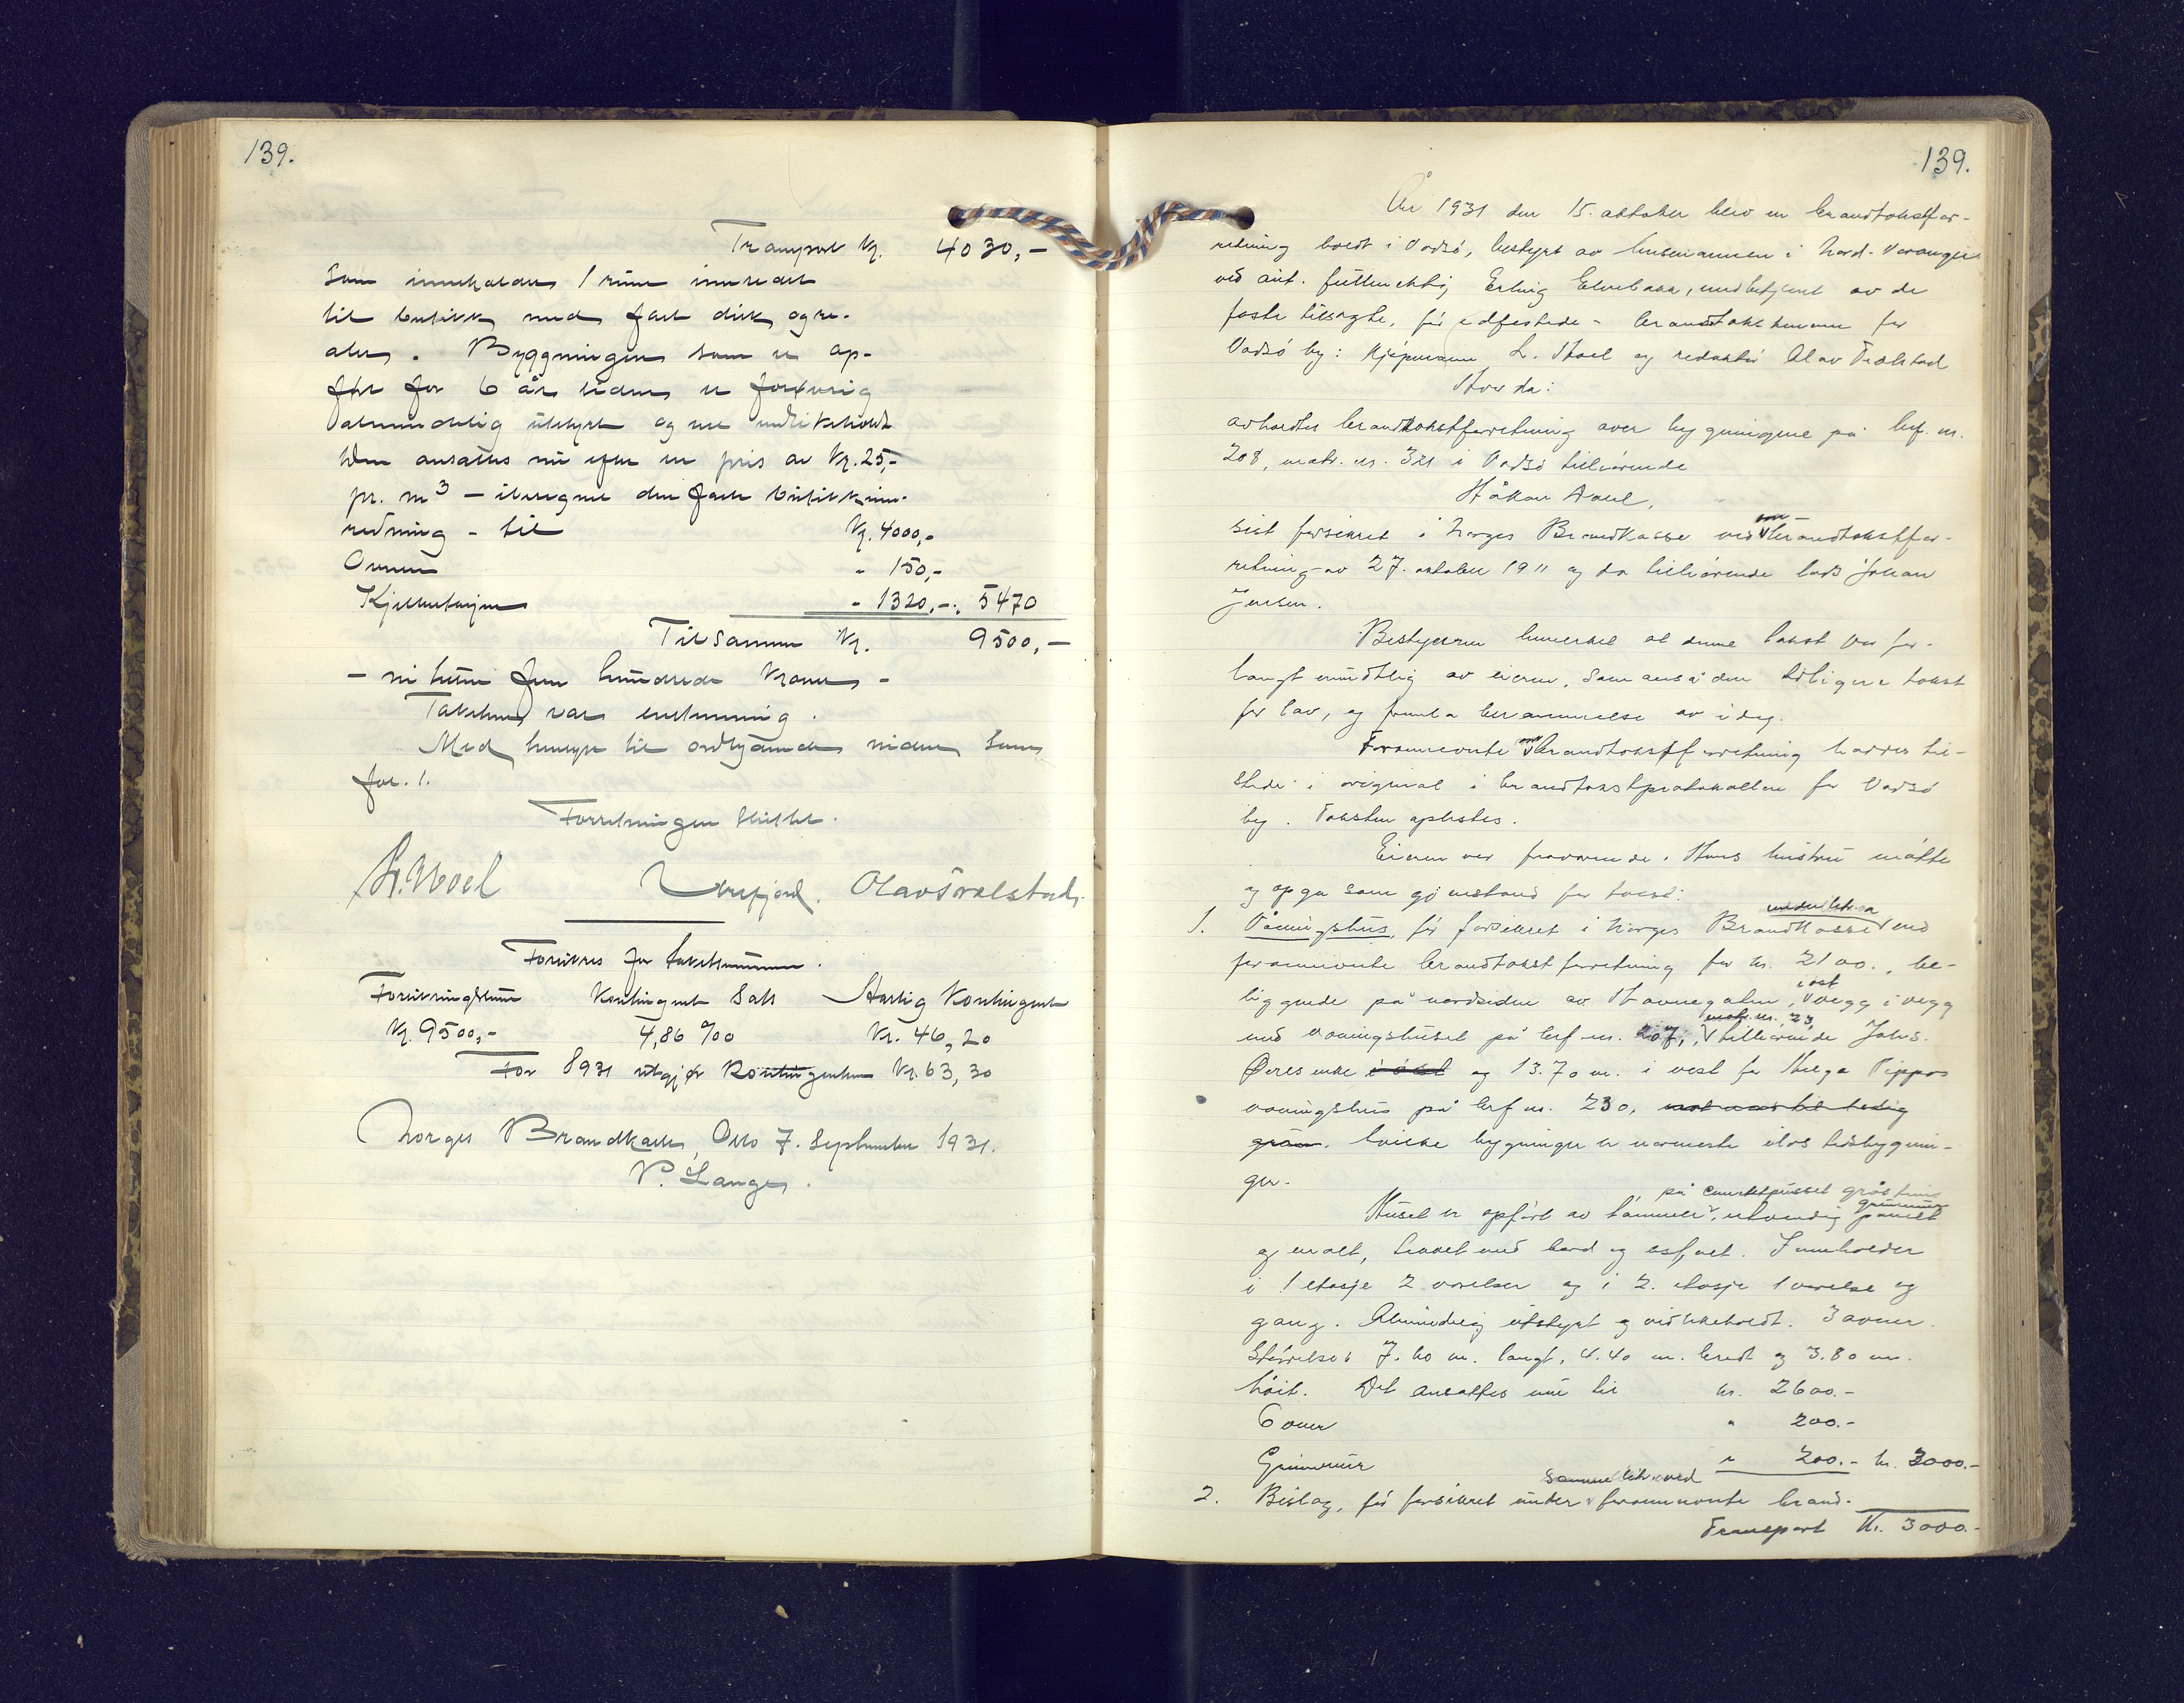 139.
Transport Kr. 4030,-
som inneholder 1 rum innredet
til butikk med fast disk og re-
oler. Byggningen som er op-
ført for 6 år siden er forøvrig
almindelig utstyrt og vel vedlikeholdt
Den ansattes nu efter en pris av Kr. 25,-
pr. m3 - iberegnet den faste butikkinn-
redning - til Kr. 4000,-
Ovnen " 150,-
Kjellermuren " 1320,-: 5470
Tilsammen Kr. 9500,-
- ni tusen fem hundrede kroner -
Taksten var enstemmig.
Med hensyn til ordlydende niden som
for. 1.
Forretningen sluttet.
L. Moel Olav Trælstad.
Forsikres for takstsummen.
Forsikringssum Kontingent Sats Aarlig Kontingent
Kr. 9500,- 4,86 ‰ Kr. 46,20
For 1931 utgjør Kontingenten Kr. 63,30
Norges Brandkasse, Oslo 7. September 1931.
P. Lange.
139.
År 1931 den 15. oktober blev en brandtakstfor-
retning holdt i Vadsö, bestyrt av lensmannen i Nord-Varanger
ved aut. fullmektig Erling Elvebakk, med betjent av de
faste tilsagte, før edfestede - brandtakstmenn for
Vadsö by: Kjöpmann L. Moel og redaktör Olav Trælstad
Hvorda:
avholdtes brandtakstforretning over bygningene på brf. nr.
208, matr. nr. 321 i Vadsö tilhörende
Håkon
sist forsikret i Norges Brandkasse ved om- brandtakstfor-
retning av 27. oktober 1911 og da tilhörende lods Johan
Jensen.
Bestyreren bemerket at denne takst var for-
langt mundtlig av eieren, som anså den tidligere takst
for lav, og framla berammelse av idag.
Forannevnte om brandtakstforretning haddes til-
stede i original i brandtakstprotokollen for Vadsö
by. Taksten oplestes.
Eieren var fraværende. Hans hustru mötte
og opga som gjenstand for takst:
under litr. a
1. Våningshus, för forsikret i Norges Brandkasse ved
forannevnte brandtakstforretning for kr. 2100., be-
i öst
liggende på nordsiden av Havnegaten, vegg i vegg
matr. nr. 23
med vaaningshuset på brf. nr. 207, tilhörende Johs.
enke i öst og 13.70 m. i vest for Helga Pippos
vaaningshus på brf nr. 230,
hvilke bygninger er nærmeste ildstedsbygnin-
ger.
på cementpusset gråstens
grunnmur
Huset er opfört av tömmer, utvendig panelt
og malt, tekket med bord og asfalt. Inneholder
i 1 etasje 2 værelser og i 2. etasje 1 værelse og
gang. Almindelig utstyrt og vedlikeholdt. 3 ovner.
Störrelse: 7.60 m. langt, 4.40 m. bredt og 3.80 m.
höit. Det ansattes nu til kr. 2600.-
Ovner " 200.-
Grunnmur " 200.- kr. 3000.-
samme litr. ved
2. Bislag, för forsikret under forannevnte brand-
Transport Kr. 3000.-